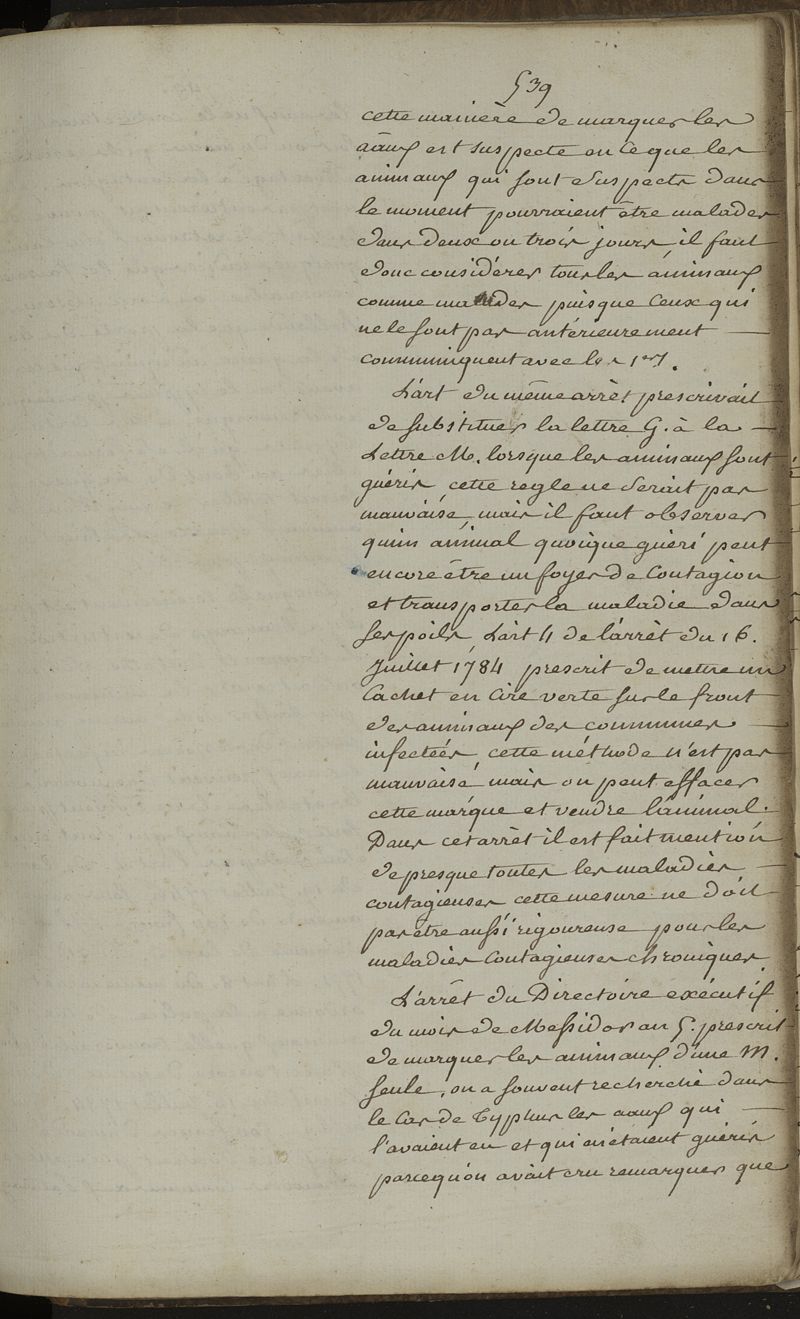 539
cette maniere de marquer les
aaux est suspecte en ce que les
animaux qui sont suspects dans
le moment pourraient être malades
dans deux ou trois jours, il faut
donc considérer tous les animaux
comme malades puisque ceux qui
ne le sont pas antérieurement
communiquent avec les 1ers.
L'art du même arrêt prescrivait
de substituer la lettre G. à la
Lettre M. lorsque les animaux sont
guéris, cette regle ne serait pas
mauvaise, mais il faut observer
qu'un animal quoique guéri peut
encore être un foyer de Contagion
et transporter la maladie dans
ses poils, L'art 4 de l'arrêt du 16.
Juillet 1784 prescrit de mettre un
Cachet en Cire verte sur le front
des animaux des communes
infectées, cette méthode n'est pas
mauvaise, mais on peut effacer
cette marque et vendre l'animal.
Dans cet arrêt il est fait mention
de presque toutes les maladies
contagieuses, cette mesure ne doit
pas être aussi rigoureuse pour les
maladies Contagieuses chroniques.
L'arrêt du Directoire exécutif
du mois de Messidor an 5. prescrit
de marquer les animaux d'une M.
seule, on a souvent recherché dans
le Cas de Typhus les aaux qui
l'avaient eu et qui en étaient guéris
parcequ'on avait cru remarquer que